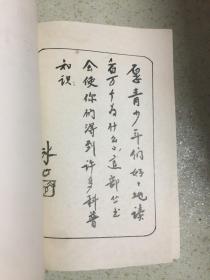 愿青少年们好好地读
看《十万个为什么》这部丛书
会使你们得到许多科普
知识